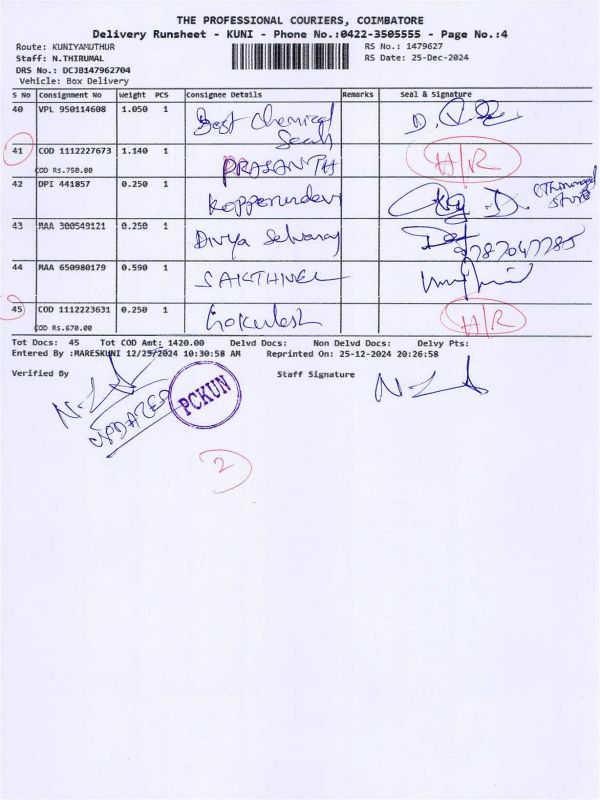 THE PROFESSIONAL COURIERS, COIMBATORE
Delivery Runsheet - KUNI - Phone No.:0422-3505555 - Page No.:4
Route: KUNIYAMUTHUR RS No.: 1479627
Staff: N.THIRUMAL RS Date: 25-Dec-2024
DRS No.: DCJB147962704
Vehicle: Box Delivery
S No Consignment No Weight PCS Consignee Details Remarks Seal & Signature
40 VPL 950114608 1.050 1 Best Chemical
41 COD 1112227673 1.140 1 PRASANTH H/R
COD Rs.750.00
42 DPI 441857 0.250 1 Store
43 MAA 300549121 0.250 1 Divya Selvaraj
44 MAA 650980179 0.590 1 SAKTHIVEL
45 COD 1112223631 0.250 1 Gokulesh H/R
COD Rs.670.00
Tot Docs: 45 Tot COD Amt: 1420.00 Delvd Docs: Non Delvd Docs: Delvy Pts:
Entered By :MARESKUNI 12/25/2024 10:30:58 AM Reprinted On: 25-12-2024 20:26:58
Verified By Staff Signature
UPDATED PCKUN
2